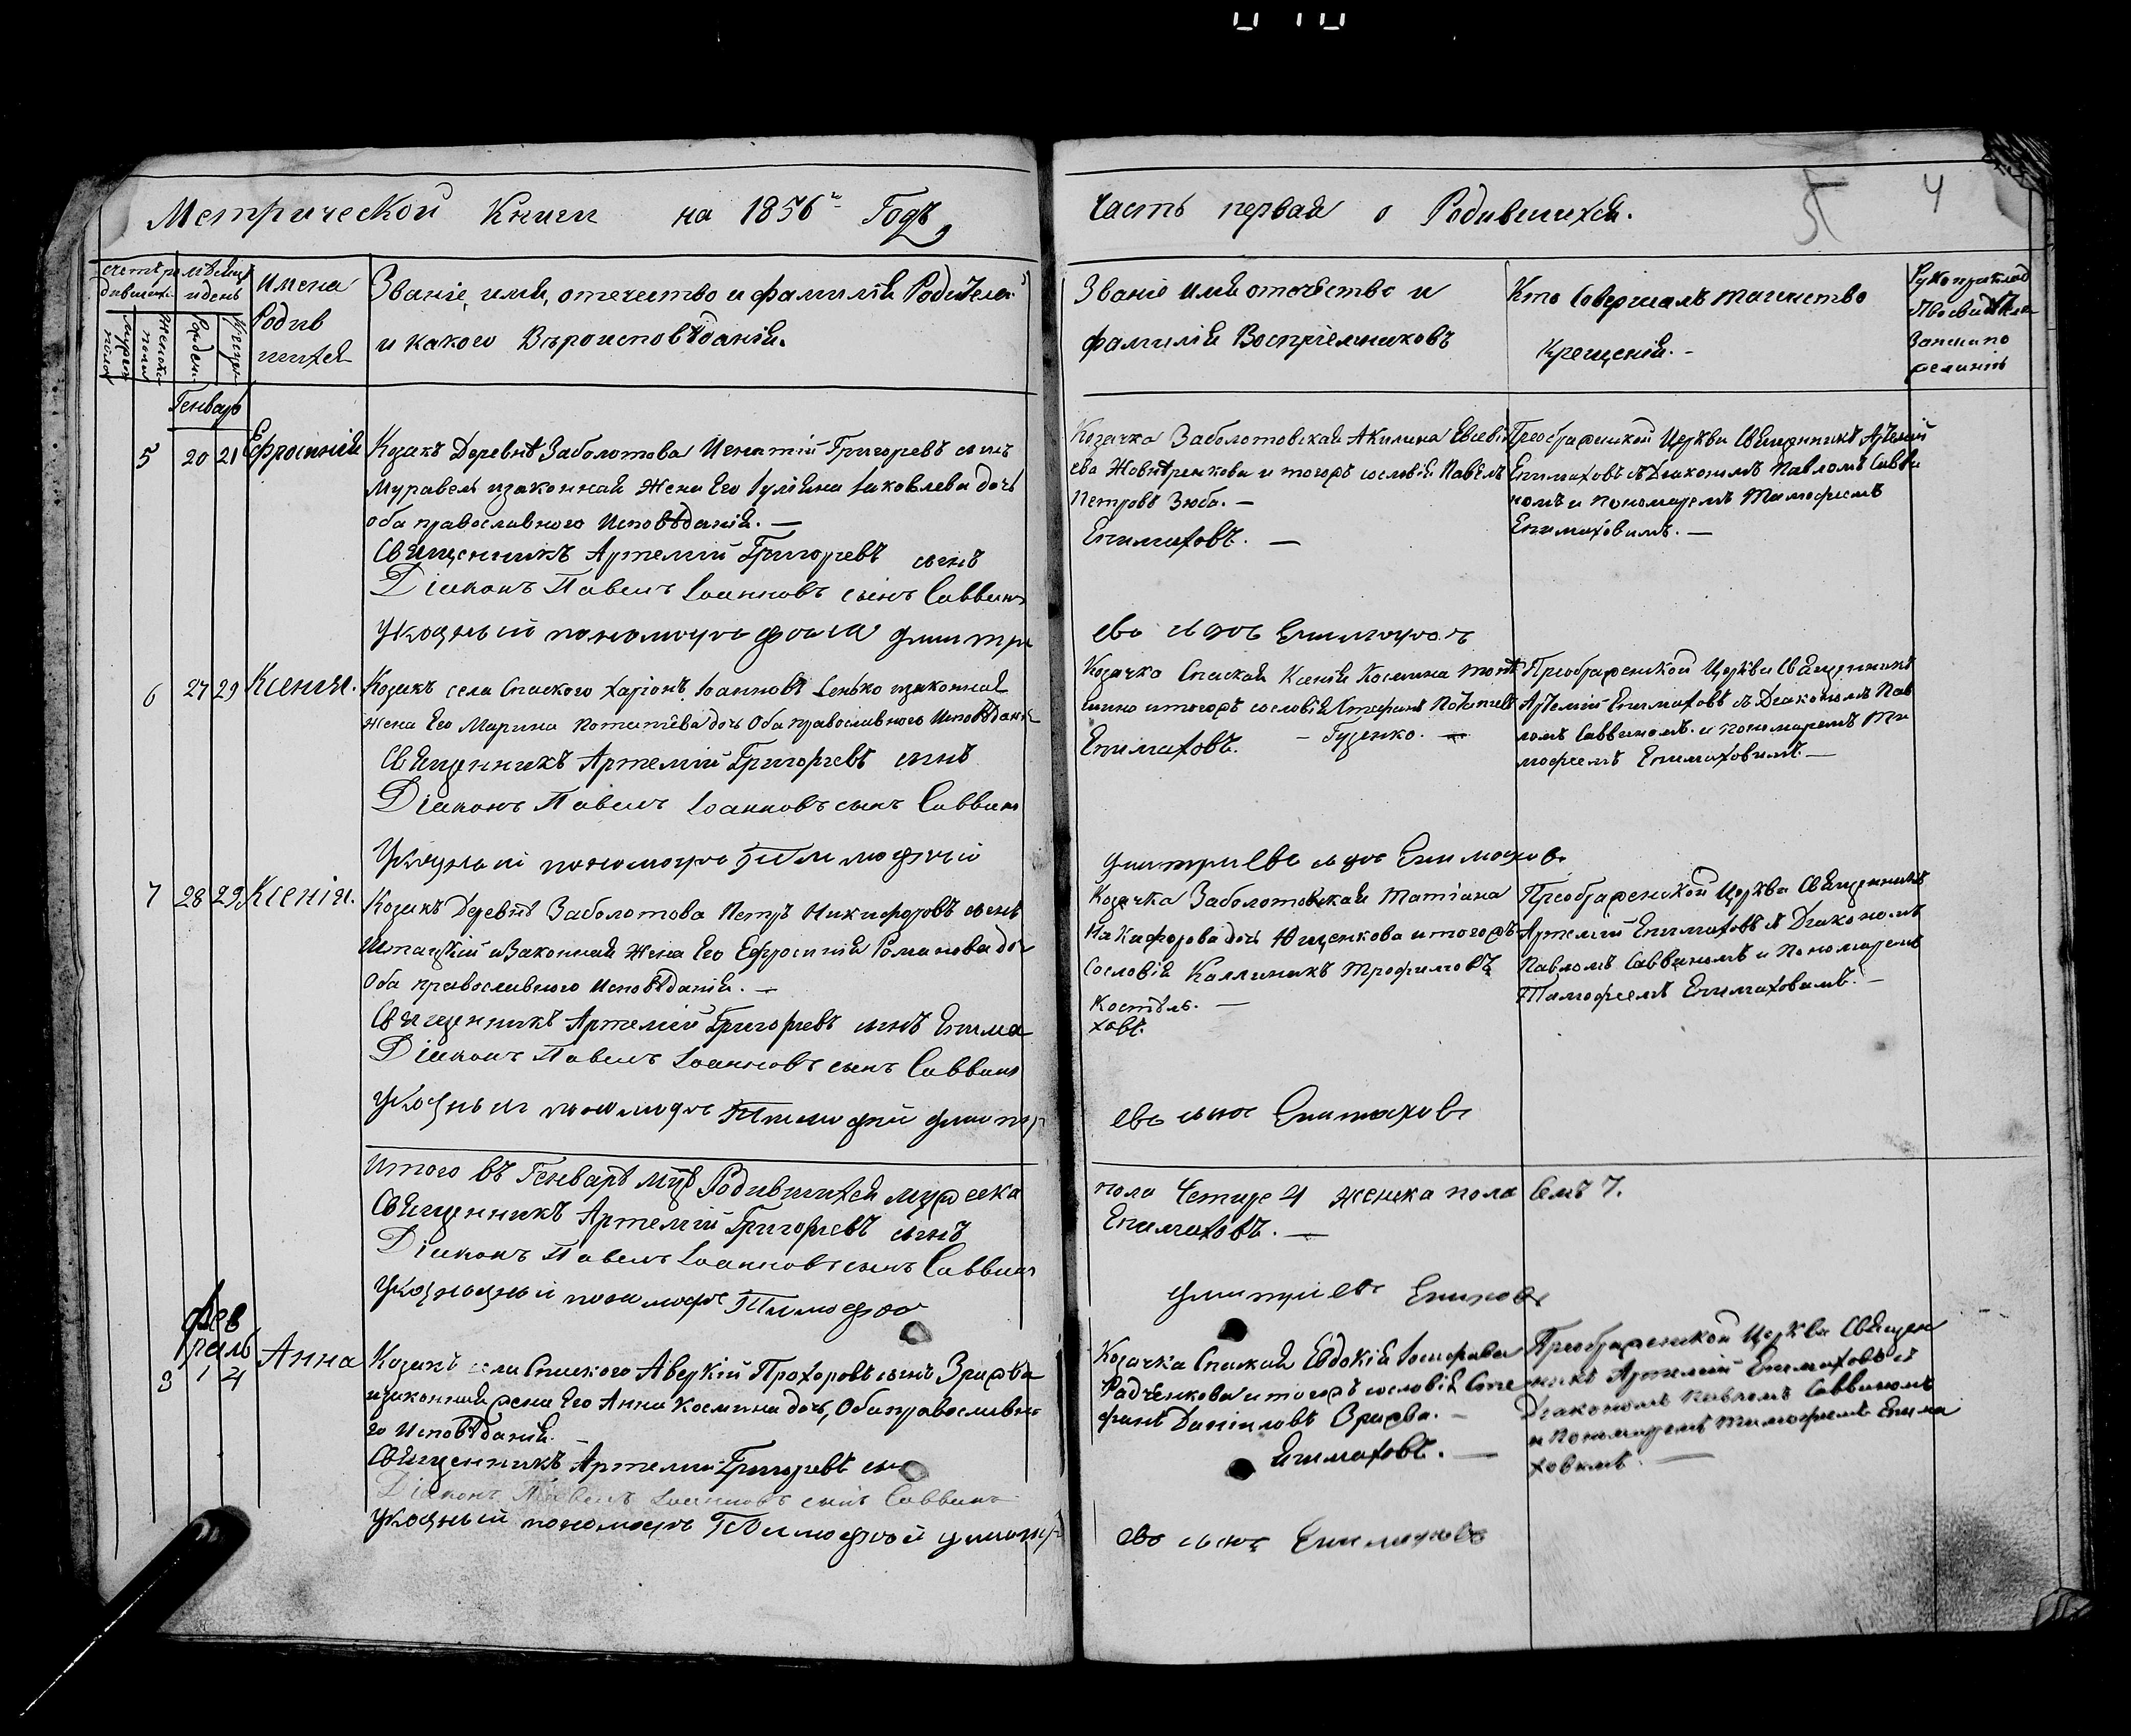 Метрической Книги на 1856й Годъ
Часть первая о Родившихся.
5 4
Имена
Родив
шихся
Званіе, имя, отечество и фамилія Родителей
и какого Вѣроисповѣданія.
Званіе имя отечество и
фамилія Воспріемниковъ
Кто Совершалъ таинство
Крещенія.-
Генварь
5 20 21 Ефросинія
Козакъ Деревнѣ Заболотова Игнатій Григорьевъ сынъ
Муравель и законная Жена Его Іуліяна Іаковлева дочь
оба православного Исповѣданія. —
Священникъ Артемій Григорьевъ сынъ
Діаконъ Павелъ Іоанновъ сынъ Саввин
Указный пономарь
Козачка Заболотовская Акилина Евсеві
ева Жовтренкова и тогожъ сословія Павелъ
Петровъ Зюба. —
Епимаховъ. —
евъ сынъ Епимаховъ
Преображенской Церкви Священникъ Артемій
Епимаховъ съ Діакономъ Павломъ Савви
номъ и пономаремъ Тимофеемъ
Епимаховимъ. —
6 27 29 Ксенія.
Козакъ села Спаского Харіонъ Іоанновъ Сенько и законная
жена Его Марина Потапіева дочь Оба православного Исповѣданія
Священникъ Артемій Григорьевъ сынъ
Діаконъ Павелъ Іоанновъ сынъ Саввин
Указный пономарь Тимофей
Козачка Спаская Ксенія Космина
и тогожъ сословія Стефанъ Потапіевъ
Епимаховъ. - Гузенко. —
Димитріевъ сынъ Епимаховъ
Преображенской Церкви Священникъ
Артемій Епимаховъ съ Діакономъ Пав
ломъ Саввиномъ и пономаремъ Ти
мофеемъ Епимаховимъ. —
7 28 29 Ксенія.
Козакъ Деревнѣ Заболотова Петръ Никифоровъ сынъ
и Законная Жена Его Ефросинія Романова доч
Оба православного Исповѣданія. —
Священникъ Артемій Григорьевъ сынъ Епима
Діаконъ Павелъ Іоанновъ сынъ Саввин
Указный пономарь Тимофей Димитр
Козачка Заболотовская Татіана
Никифорова дочь Ющенкова и тогожъ
Сословія Каллиникъ Трофимовъ
Костѣль. —
ховъ.
евъ сынъ Епимаховъ
Преображенской Церкви Священникъ
Артемій Епимаховъ съ Діакономъ
Павломъ Саввиномъ и Пономаремъ
Тимофеемъ Епимаховимъ. —
Итого въ Генварѣ мцѣ Родившихся мужеска
пола Четире 4 женска пола Семъ 7.
Священникъ Артемій Григорьевъ сынъ
Епимаховъ. —
Діаконъ Павелъ Іоанновъ сынъ Саввин
Указный пономарь Тимофей
Димитріевъ
Фев
раль
8 1 4 Анна
Козакъ села Спаского Аверкій Прохоровъ сынъ Зражва
и законная жена Его Анна Космина дочь, Оба православно
го Исповѣданія.
Священникъ Артемій Григорьевъ сы
Діаконъ Павелъ Іоанновъ сынъ Саввинъ
Указный пономарь Тимофей Димитр
Козачка Спаская Евдокія Іосифова
Радченкова и тогожъ сословія Сте
фанъ Даніиловъ Зражва. —
Епимаховъ. —
евъ сынъ Епимаховъ
Преображенской Церкви Священ
никъ Артемій Епимаховъ съ
Діакономъ Павломъ Саввиномъ
и Пономаремъ Тимофеемъ Епима
ховимъ. —